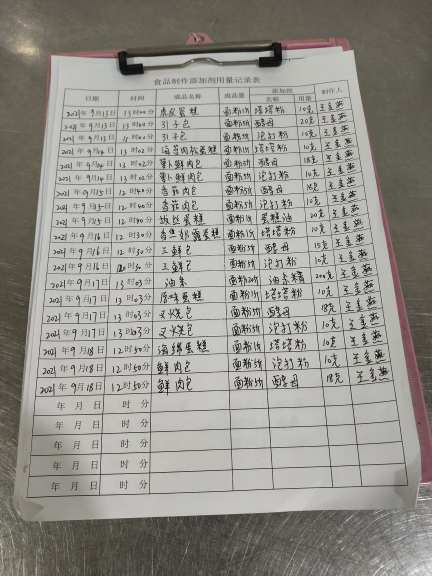 食品制作添加剂用量记录表
日期 时间 成品名称 成品量 添加剂名称 用量 制作人
2021年9月13日 13时00分 蛋糕 面粉 塔塔粉 10克 王金燕
2021年9月13日 13时00分 引子包 面粉5斤 酵母 20克 王金燕
2021年9月13日 13时00分 引子包 面粉5斤 泡打粉 10克 王金燕
2021年9月14日 13时02分 海苔肉松蛋糕 面粉1斤 塔塔粉 10克 王金燕
2021年9月14日 13时02分 萝卜鲜肉包 面粉5斤 酵母 18克 王金燕
2021年9月14日 13时02分 萝卜鲜肉包 面粉5斤 泡打粉 10克 王金燕
2021年9月15日 12时40分 香菇肉包 面粉5斤 酵母 18克 王金燕
2021年9月15日 12时40分 香菇肉包 面粉5斤 泡打粉 10克 王金燕
2021年9月15日 12时40分 蛋糕 面粉1斤 蛋糕油 20克 王金燕
2021年9月16日 12时30分 蛋糕 面粉1斤 塔塔粉 10克 王金燕
2021年9月16日 12时30分 三鲜包 面粉5斤 酵母 15克 王金燕
2021年9月16日 12时30分 三鲜包 面粉5斤 泡打粉 10克 王金燕
2021年9月17日 13时03分 油条 面粉20斤 油条精 200克 王金燕
2021年9月17日 13时03分 原味蛋糕 面粉1斤 塔塔粉 10克 王金燕
2021年9月17日 13时03分 叉烧包 面粉5斤 酵母 18克 王金燕
2021年9月17日 13时03分 叉烧包 面粉5斤 泡打粉 10克 王金燕
2021年9月18日 12时50分 海绵蛋糕 面粉1斤 塔塔粉 10克 王金燕
2021年9月18日 12时50分 鲜肉包 面粉5斤 泡打粉 10克 王金燕
2021年9月18日 12时50分 鲜肉包 面粉5斤 酵母 18克 王金燕
年 月 日 时 分
年 月 日 时 分
年 月 日 时 分
年 月 日 时 分
年 月 日 时 分